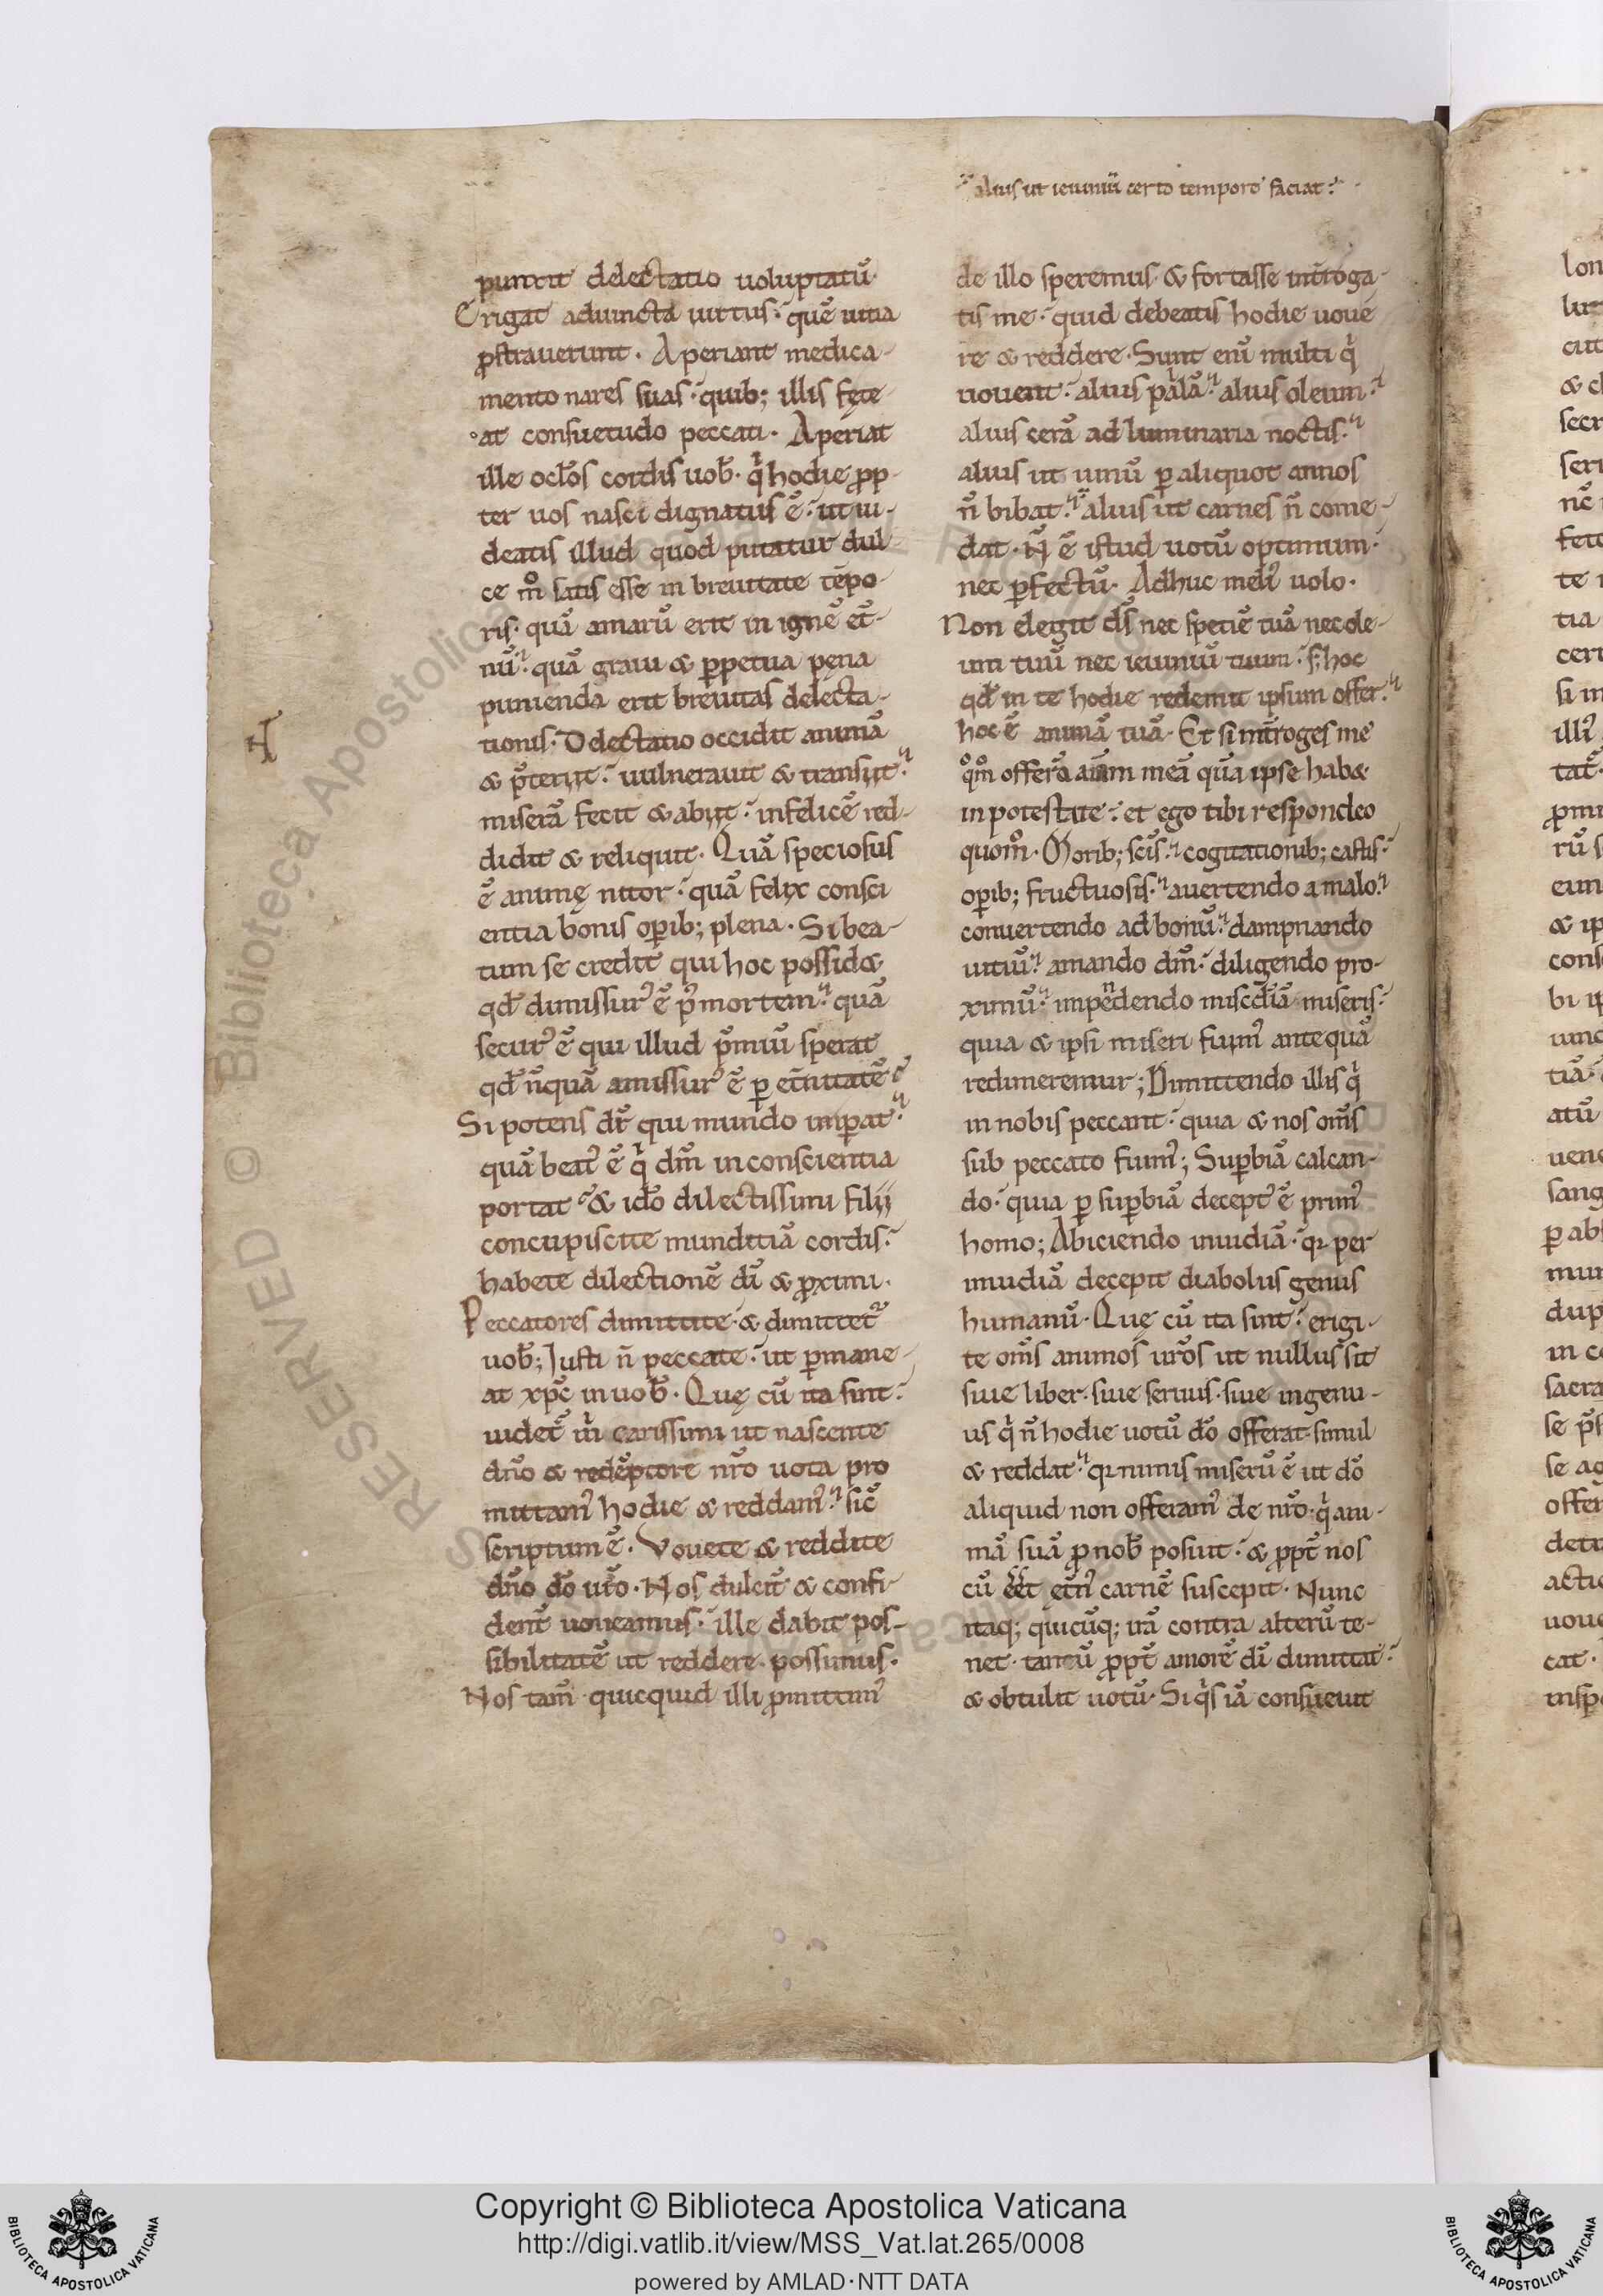 alius ut ieiuniū certo tempore faciat.
punxit delectatio uoluptatū.
Erigat adiuncta uirtus. quē uitia
ꝓstrauerunt. Aperiant medica-
mento nares suas. quib; illis fęte-
at consuetudo peccati. Aperiat
ille ocłos cordis uob̄. qͥ hodie ꝓp-
ter uos nasci dignatus ē. ut ui-
deatis illud quod putatur dul-
ce m̊ satis esse in breuitate tēpo-
ris. quā amarū erit in ignē et̄-
nū. quā graui & ꝑpetua pęna
punienda erit breuitas delecta-
tionis. Delectatio occidit animā
& p̄teriit. uulnerauit & transiit.
miserā fecit & abiit. infelicē red-
didit & reliquit. Quā speciosus
ē animę nitor. quā felix consci
entia bonis oꝑib; plena. Si bea-
tum se credit qui hoc possid&
qd̄ dimissurꝰ ē p̄ mortem. quā
securꝰ ē qui illud p̄miū sperat
qd̄ nūquā amissurꝰ ē ꝑ et̄nitatē
Si potens dr̄ qui mundo imꝑat.
quā beatꝰ ē qͥ dm̄ in conscientia
portat & ido dilectissimi filii
concupiscite munditiā cordis.
habete dilectionē dī & ꝓximi.
Peccatores dimittite. & dimittet᷑
uob̄; Iusti n̄ peccate. ut ꝑmane-
at xp̄c in uob̄. Quę cū ita sint.
uidet᷑ m̄ carissimi ut nascente
dn̄o & redēptore nr̄o uota pro
mittamꝰ hodie & reddamꝰ. sic̄
scriptum ē. Vouete & reddite
dn̄o dō ur̄o. Nos dulcit̄ & confi-
dent̄ uoueamus. ille dabit pos-
sibilitatē ut reddere possimus.
Nos tam̄ quicquid illi ꝓmittimꝰ
de illo speremus. & fortasse int̄roga-
tis me. quid debeatis hodie uoue
re & reddere. Sunt enī multi qͥ
uouent. alius pallā. alius oleum.
alius cerā ad luminaria noctis.
alius ut uinū ꝑ aliquot annos
n̄ bibat. alius ut carnes n̄ come-
dat. N̄ ē istud uotū optimum.
nec ꝑfectū. Adhuc meliꝰ uolo.
Non elegit ds̄ nec speciē tuā nec ole-
um tuū nec ieiuniū tuum. s; hoc
qd̄ in te hodie redemit ipsum offer.
hoc ē animā tuā. Et si int̄roges me
qͦm̊ offerā aīam meā quā ipse hab&
in potestate. et ego tibi respondeo
quom̊. Morib; scīs. cogitationib; castis.
oꝑib; fructuosis. auertendo a malo.
conuertendo ad bonū. dampnando
uitiū. amando dm̄. diligendo pro-
ximū. impendendo misc̄diā miseris.
quia & ipsi miseri fuimꝰ antequā
redimeremur; Dimittendo illis qͥ
in nobis peccant. quia & nos om̄s
sub peccato fuimꝰ; Suꝑbiā calcan-
do. quia ꝑ suꝑbiā deceptꝰ ē primꝰ
homo; Abiciendo inuidiā. qꝛ per
inuidiā decepit diabolus genus
humanū. Quę cū ita sint. erigi-
te om̄s animos ur̄os ut nullus sit
siue liber. siue seruus. siue ingenu-
us qͥ n̄ hodie uotū dō offerat simul
& reddat. qꝛ nimis miserū ē ut dō
aliquid non offeramꝰ de nr̄o. qͥ ani-
mā suā ꝓ nob̄ posuit. & ꝓpt̄ nos
cū eēt et̄nꝰ carnē suscepit. Nunc
itaq; quicūq; irā contra alterū te-
net. tantū ꝓpt̄ amorē dī dimittat.
& obtulit uotū. Si qͥs iā consueuit
Copyright © Biblioteca Apostolica Vaticana
http://digi.vatlib.it/view/MSS_Vat.lat.265/0008
powered by AMLAD·NTT DATA
BIBLIOTECA APOSTOLICA VATICANA
BIBLIOTECA APOSTOLICA VATICANA